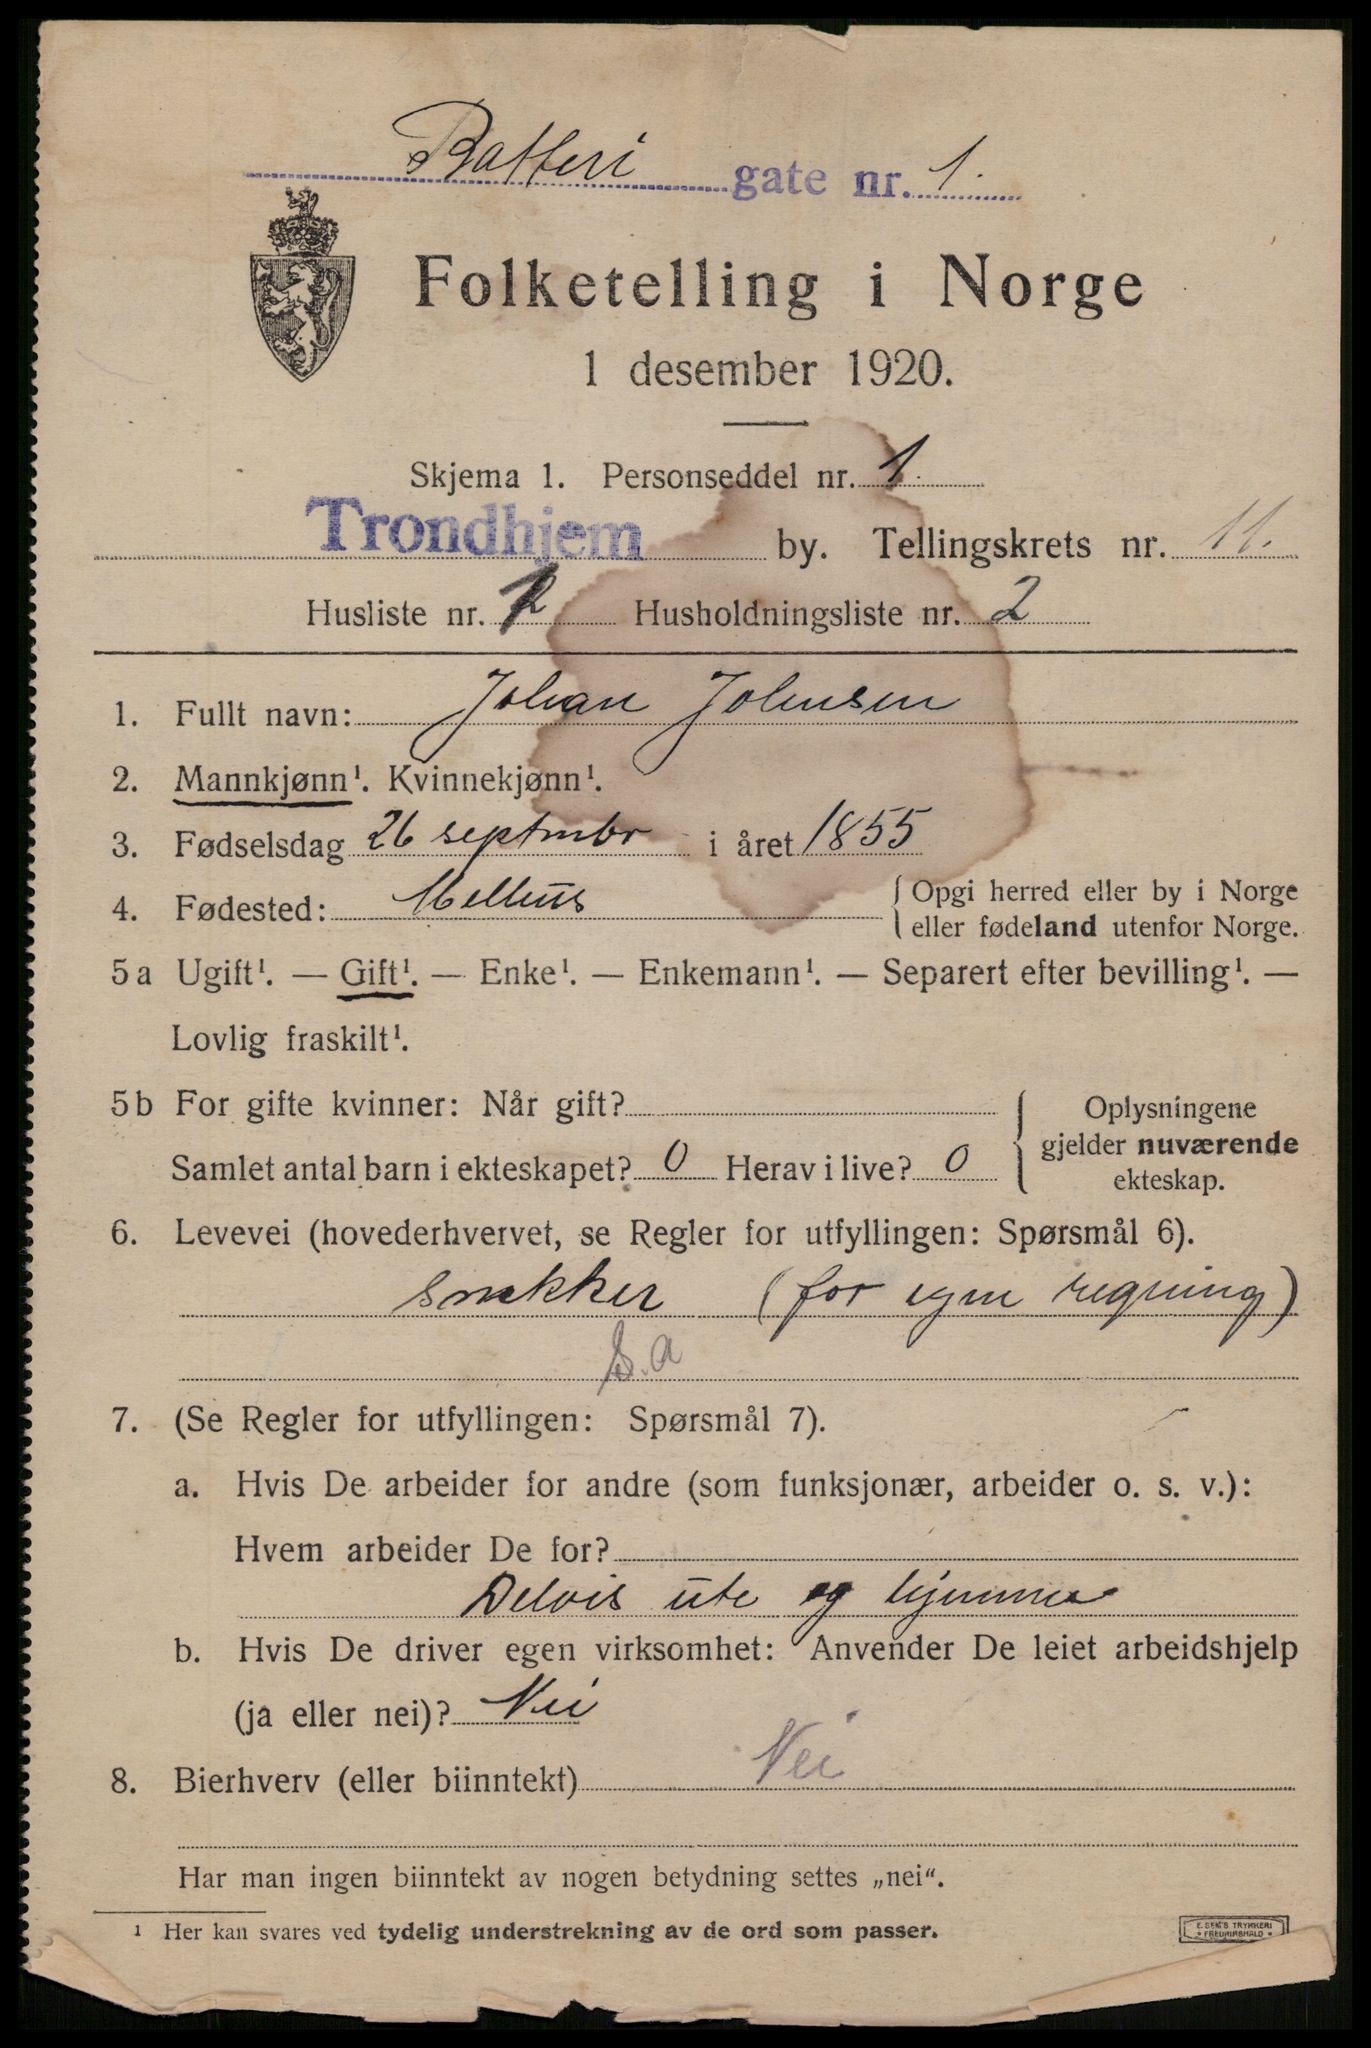 Batteri gate nr. 1.
Folketelling i Norge
1 desember 1920.
Skjema 1. Personseddel nr. 1.
Trondhjem by. Tellingskrets nr. 11.
Husliste nr. 2 Husholdningsliste nr. 2
1. Fullt navn: Johan Johnsen
2. Mannkjønn¹. Kvinnekjønn¹.
3. Fødselsdag 26 septmbr i året 1855
4. Fødested: Melhus {Opgi herred eller by i Norge
eller fødeland utenfor Norge.
5a Ugift¹. — Gift¹. — Enke¹. — Enkemann¹. — Separert efter bevilling¹. —
Lovlig fraskilt¹.
5b For gifte kvinner: Når gift?
Samlet antal barn i ekteskapet? 0 Herav i live? 0
{Oplysningene
gjelder nuværende
ekteskap.
6. Levevei (hovederhvervet, se Regler for utfyllingen: Spørsmål 6).
snekker (for egen regning)
S.a
7. (Se Regler for utfyllingen: Spørsmål 7).
a. Hvis De arbeider for andre (som funksjonær, arbeider o. s. v.):
Hvem arbeider De for?
Delvis ute og hjemme
b. Hvis De driver egen virksomhet: Anvender De leiet arbeidshjelp
(ja eller nei)? Nei
8. Bierhverv (eller biinntekt) Nei
Har man ingen biinntekt av nogen betydning settes „nei“.
¹ Her kan svares ved tydelig understrekning av de ord som passer.
E. SEM'S TRYKKERI
* FREDRIKSHALD *